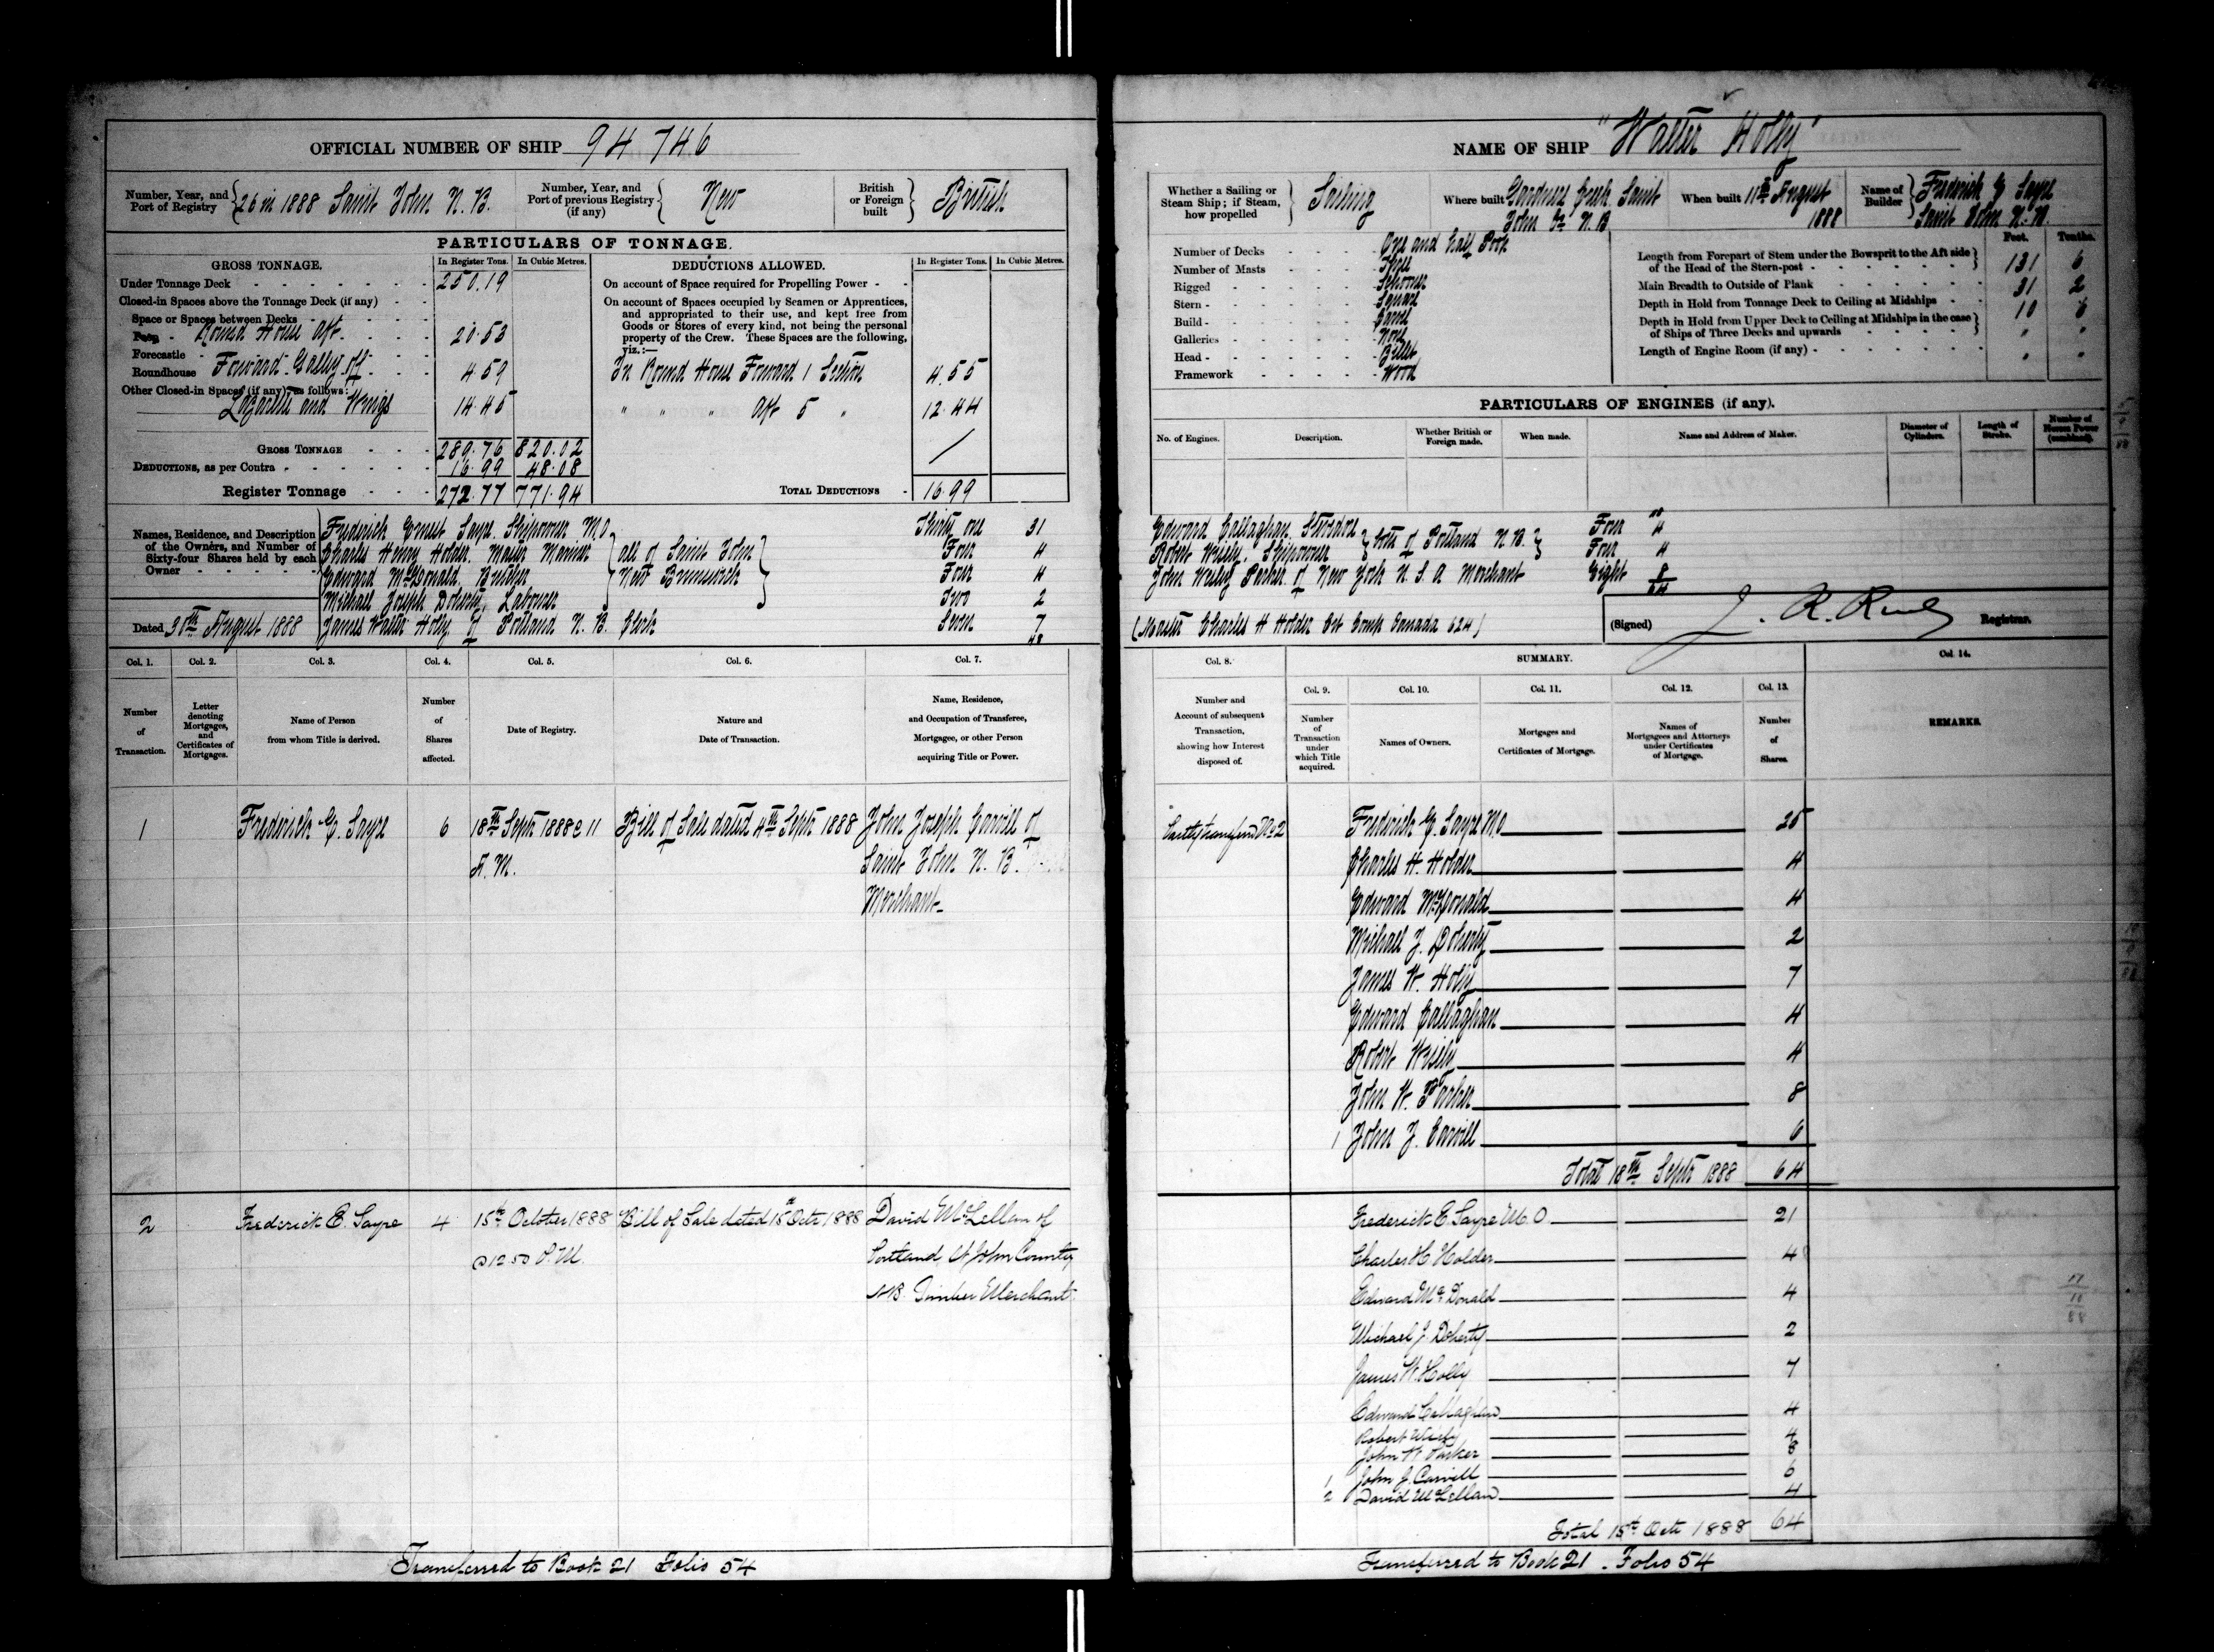 OFFICIAL NUMBER OF SHIP 94 746
Number, Year, and Port of Registry
26 in 1888 Saint John N. B.
Number, Year, and Port of previous Registry (if any)
New
British or Foreign built
British
PARTICULARS OF TONNAGE.
GROSS TONNAGE. In Register Tons. In Cubic Metres.
Under Tonnage Deck 250.19
Closed-in Spaces above the Tonnage Deck (if any)
Space or Spaces between Decks
Poop Round House Aft 20.53
Forecastle
Roundhouse Forward Galley off 4 59
Other Closed-in Spaces (if any), as follows:
Lazarette and Wings 14.45
GROSS TONNAGE 289.76 820.02
DEDUCTIONS, as per Contra 16.99 48.08
Register Tonnage 272.77 771.94
DEDUCTIONS ALLOWED. In Register Tons. In Cubic Metres.
On account of Space required for Propelling Power
On account of Spaces occupied by Seamen or Apprentices,
and appropriated to their use, and kept free from
Goods or Stores of every kind, not being the personal
property of the Crew. These Spaces are the following,
viz.:—
In Round House Forward 1 4.55
" " " Aft 5 " 12.44
TOTAL DEDUCTIONS 16.99
Names, Residence, and Description
of the Owners, and Number of
Sixty-four Shares held by each
Owner
Frederick Ernest Sayre. Shipowner M.O. Thirty one 31
Charles Henry Holder. Master Mariner Four 4
Edward McDonald. Four 4
Michael Joseph Doherty, Labourer Two 2
all of Saint John
New Brunswick
Dated 30th August 1888
James Walter Holly of Portland N. B. Clerk Seven 7
48
Col. 1. Col. 2. Col. 3. Col. 4. Col. 5. Col. 6. Col. 7.
Number of Transaction.
Letter denoting Mortgages, and Certificates of Mortgages.
Name of Person from whom Title is derived.
Number of Shares affected.
Date of Registry.
Nature and Date of Transaction.
Name, Residence, and Occupation of Transferee, Mortgagee, or other Person acquiring Title or Power.
1 Frederick E. Sayre 6 18th Septr 1888 @ 11 Bill of Sale dated 4th Septr 1888 John Joseph Carvill of
A.M. Saint John N. B.
Merchant
2 Frederick E. Sayre 4 15th October 1888 Bill of Sale dated 15th Octr 1888 David McLellan of
@ 12.50 P.M. Portland, St John County
N.B. Timber Merchant.
Transferred to Book 21 Folio 54
NAME OF SHIP "Walter Holly"
Whether a Sailing or Steam Ship; if Steam, how propelled
Sailing
Where built Gardners Creek Saint
John Co N.B.
When built 11th August
1888
Name of Builder
Frederick E Sayre
Saint John N. B.
Number of Decks One and half Poop
Number of Masts Three
Rigged Schooner
Stern Square
Build Carvel
Galleries None
Head Billet
Framework Wood
Feet. Tenths.
Length from Forepart of Stem under the Bowsprit to the Aft side
of the Head of the Stern-post 131 6
Main Breadth to Outside of Plank 31 2
Depth in Hold from Tonnage Deck to Ceiling at Midships 10 6
Depth in Hold from Upper Deck to Ceiling at Midships in the case
of Ships of Three Decks and upwards
Length of Engine Room (if any)
PARTICULARS OF ENGINES (if any).
No. of Engines. Description. Whether British or Foreign made. When made. Name and Address of Maker. Diameter of Cylinders. Length of Stroke. Number of Horses Power (combined).
Edward Callaghan. Stevedore Four 4
Robert Wisely. Shipowner Four 4
both of Portland N. B.
John Wesley Parker of New York U. S. A. Merchant Eight 8
64
(Master Charles H Holder Cert Comp Canada 624)
(Signed) Registrar.
Col. 8. SUMMARY. Col. 14.
Col. 9. Col. 10. Col. 11. Col. 12. Col. 13.
Number and Account of subsequent Transaction, showing how Interest disposed of.
Number of Transaction under which Title acquired.
Names of Owners.
Mortgages and Certificates of Mortgage.
Names of Mortgagees and Attorneys under Certificates of Mortgage.
Number of Shares.
REMARKS.
Partly transferred No 2 Frederick E. Sayre M.O 25
Charles H. Holder 4
Edward McDonald 4
Michael J. Doherty 2
James W. Holly 7
Edward Callaghan 4
Robert Wisely 4
John W. Parker 8
1 John J. Carvill 6
Total 18th Septr 1888 64
Frederick E. Sayre M.O 21
Charles H Holder 4
Edward McDonald 4
Michael J. Doherty 2
James W. Holly 7
Edward Callaghan 4
Robert Wisely 4
John W Parker 8
1 John J. Carvill 6
2 David McLellan 4
Total 15th Octr 1888 64
Transferred to Book 21. Folio 54